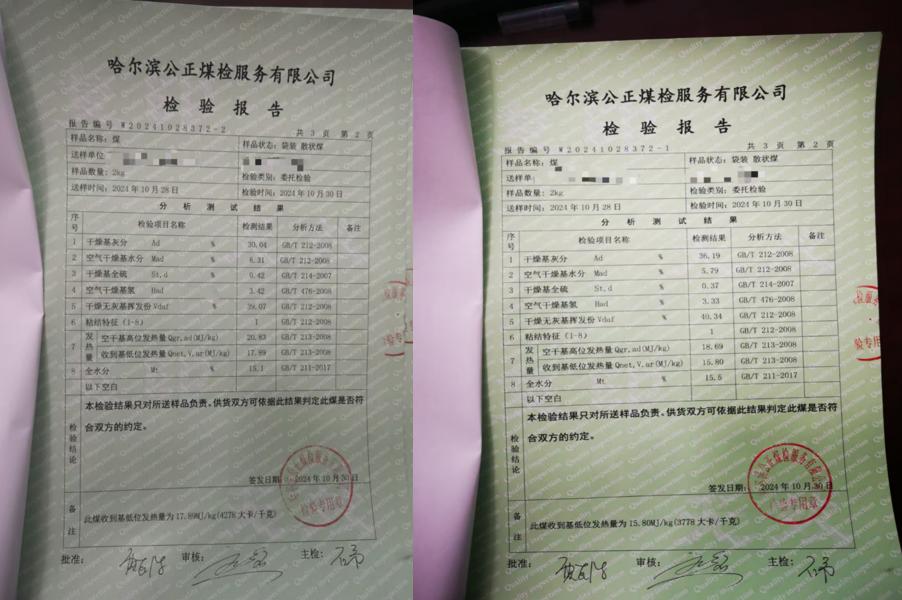 哈尔滨公正煤检服务有限公司
检 验 报 告
报告编号 W20241028372-2 共 3 页 第 2 页
样品名称：煤 样品状态：袋装 散状煤
送样单位
样品数量：2kg 检验类别：委托检验
送样时间：2024年10月28日 检验时间：2024年10月30日
分 析 测 试 结 果
序号 检验项目名称 检测结果 分析方法 备注
1 干燥基灰分 Ad % 30.04 GB/T 212-2008
2 空气干燥基水分 Mad % 6.31 GB/T 212-2008
3 干燥基全硫 St,d % 0.42 GB/T 214-2007
4 空气干燥基氢 Had % 3.42 GB/T 476-2008
5 干燥无灰基挥发份 Vdaf % 39.07 GB/T 212-2008
6 粘结特征（1-8） 1 GB/T 212-2008
7 发热量 空干基高位发热量 Qgr,ad(MJ/kg) 20.83 GB/T 213-2008
收到基低位发热量 Qnet,V,ar(MJ/kg) 17.89 GB/T 213-2008
8 全水分 Mt % 15.1 GB/T 211-2017
以下空白
检验结论 本检验结果只对所送样品负责。供货双方可依据此结果判定此煤是否符
合双方的约定。
签发日期： 2024年10月30日
检验专用章
备注 此煤收到基低位发热量为17.89MJ/kg(4278大卡/千克)
批准： 审核： 主检：
哈尔滨公正煤检服务有限公司
检 验 报 告
报告编号 W20241028372-1 共 3 页 第 2 页
样品名称：煤 样品状态：袋装 散状煤
送样单
样品数量：2kg 检验类别：委托检验
送样时间：2024年10月28日 检验时间：2024年10月30日
分 析 测 试 结 果
序号 检验项目名称 检测结果 分析方法 备注
1 干燥基灰分 Ad % 36.19 GB/T 212-2008
2 空气干燥基水分 Mad % 5.79 GB/T 212-2008
3 干燥基全硫 St,d % 0.37 GB/T 214-2007
4 空气干燥基氢 Had % 3.33 GB/T 476-2008
5 干燥无灰基挥发份 Vdaf % 40.34 GB/T 212-2008
6 粘结特征（1-8） 1 GB/T 212-2008
7 发热量 空干基高位发热量 Qgr,ad(MJ/kg) 18.69 GB/T 213-2008
收到基低位发热量 Qnet,V,ar(MJ/kg) 15.80 GB/T 213-2008
8 全水分 Mt % 15.5 GB/T 211-2017
以下空白
检验结论 本检验结果只对所送样品负责。供货双方可依据此结果判定此煤是否符
合双方的约定。
签发日期： 2024年10月30日
检验专用章
备注 此煤收到基低位发热量为15.80MJ/kg(3778大卡/千克)
批准： 审核： 主检：